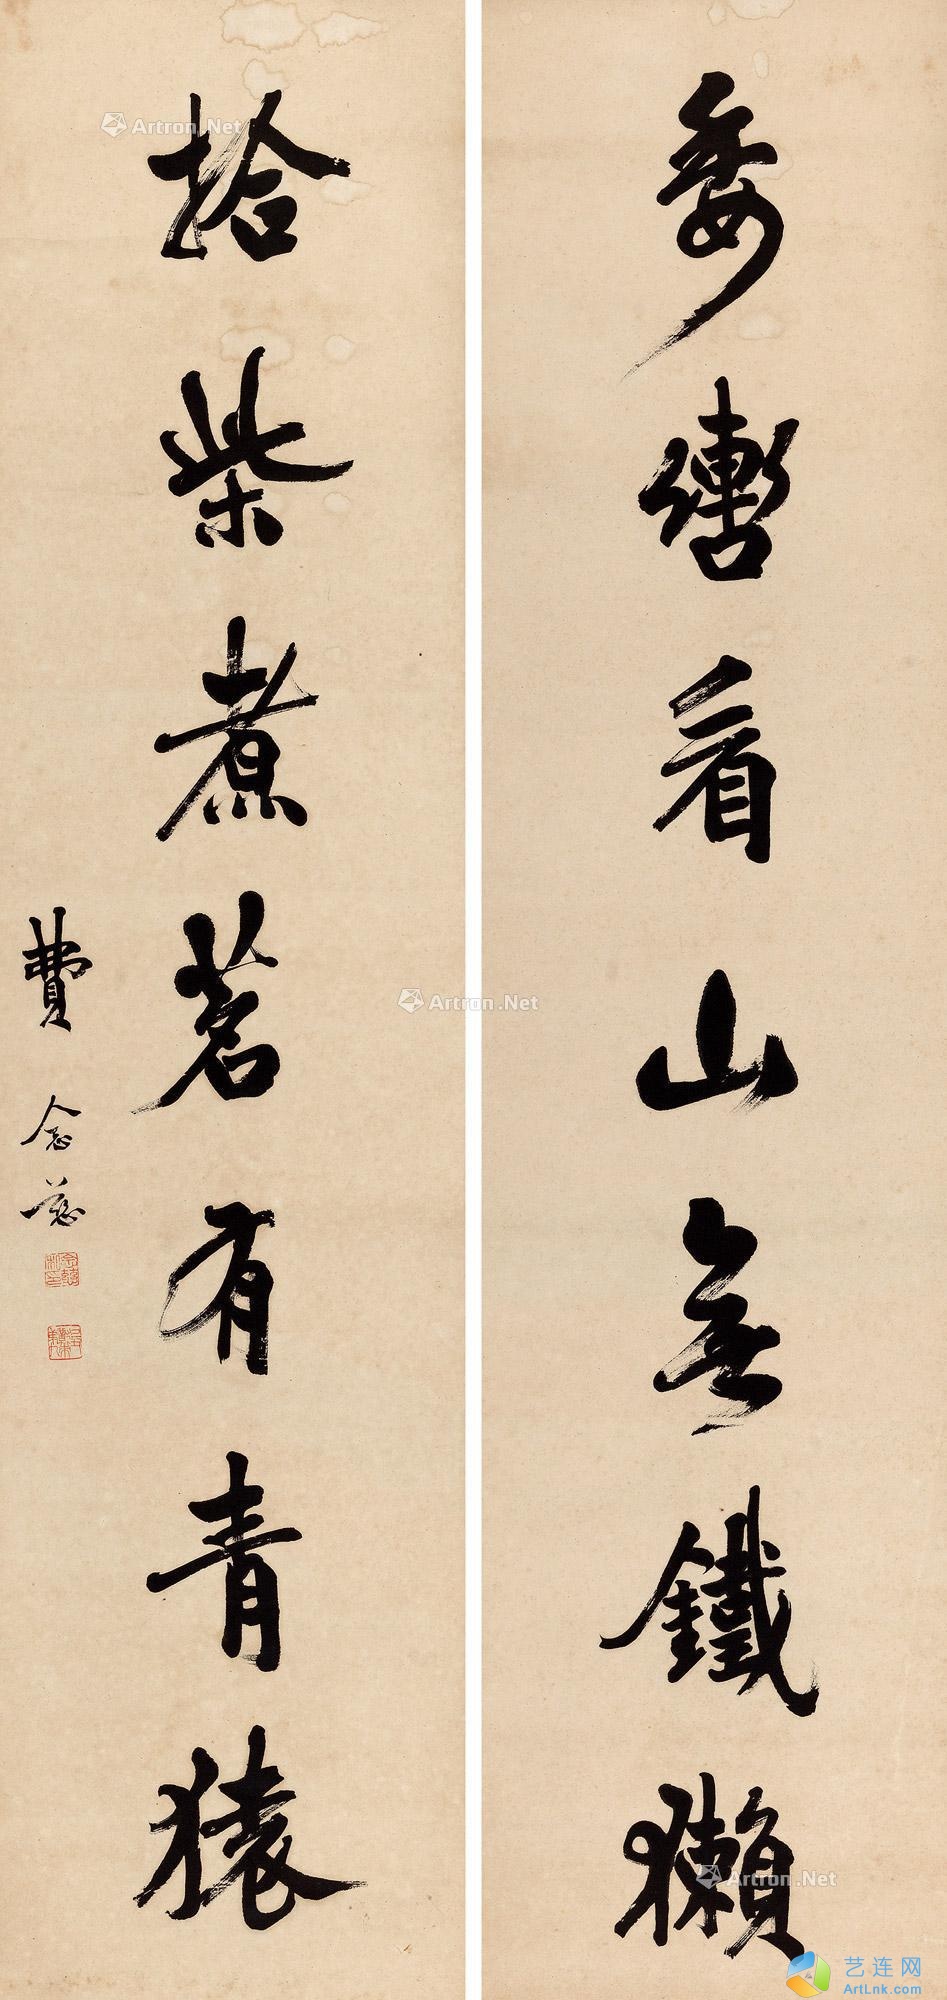 委轡看山無鐵獺
拾柴煮茗有青猿
費念慈
念慈私印
Artron.Net
Artron.Net
Artron.Net
艺连网
ArtLnk.com